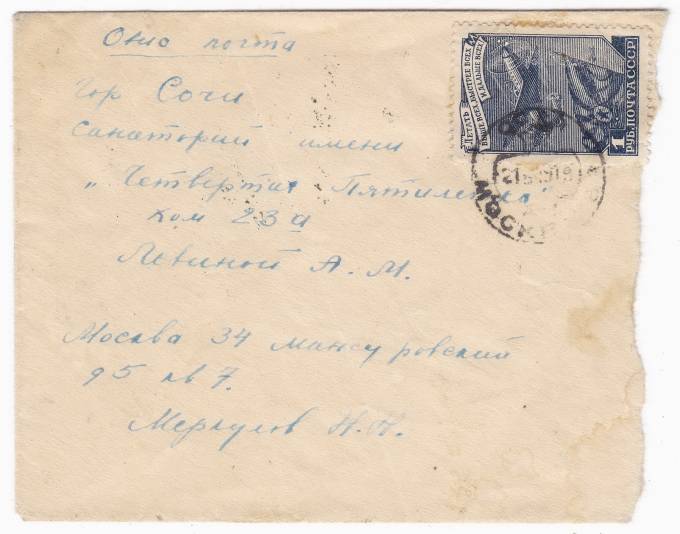 Авио почта
гор Сочи
Санаторий имени
„Четвертая Пятилетка"
ком 23а
Левиной А. М.
Москва 34 Мансуровский
95 кв 7.
Меркулов Н. Н.
ЛЕТАТЬ
ВЫШЕ ВСЕХ, БЫСТРЕЕ ВСЕХ
И ДАЛЬШЕ ВСЕХ!
1 РУБ. ПОЧТА СССР
МОСК